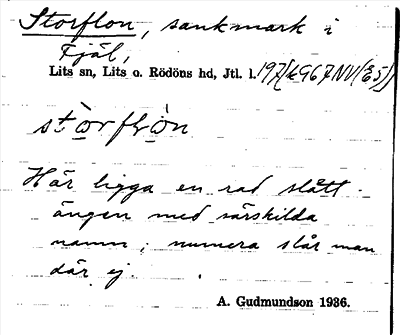 Storflon, sankmark i
Fjäl,
Lits sn, Lits o. Rödöns hd, Jtl. l. 197
stòrflòn
Här ligga en rad slått-
ängen med särskilda
namn, numera slår man
där ej.
A. Gudmundson 1936.